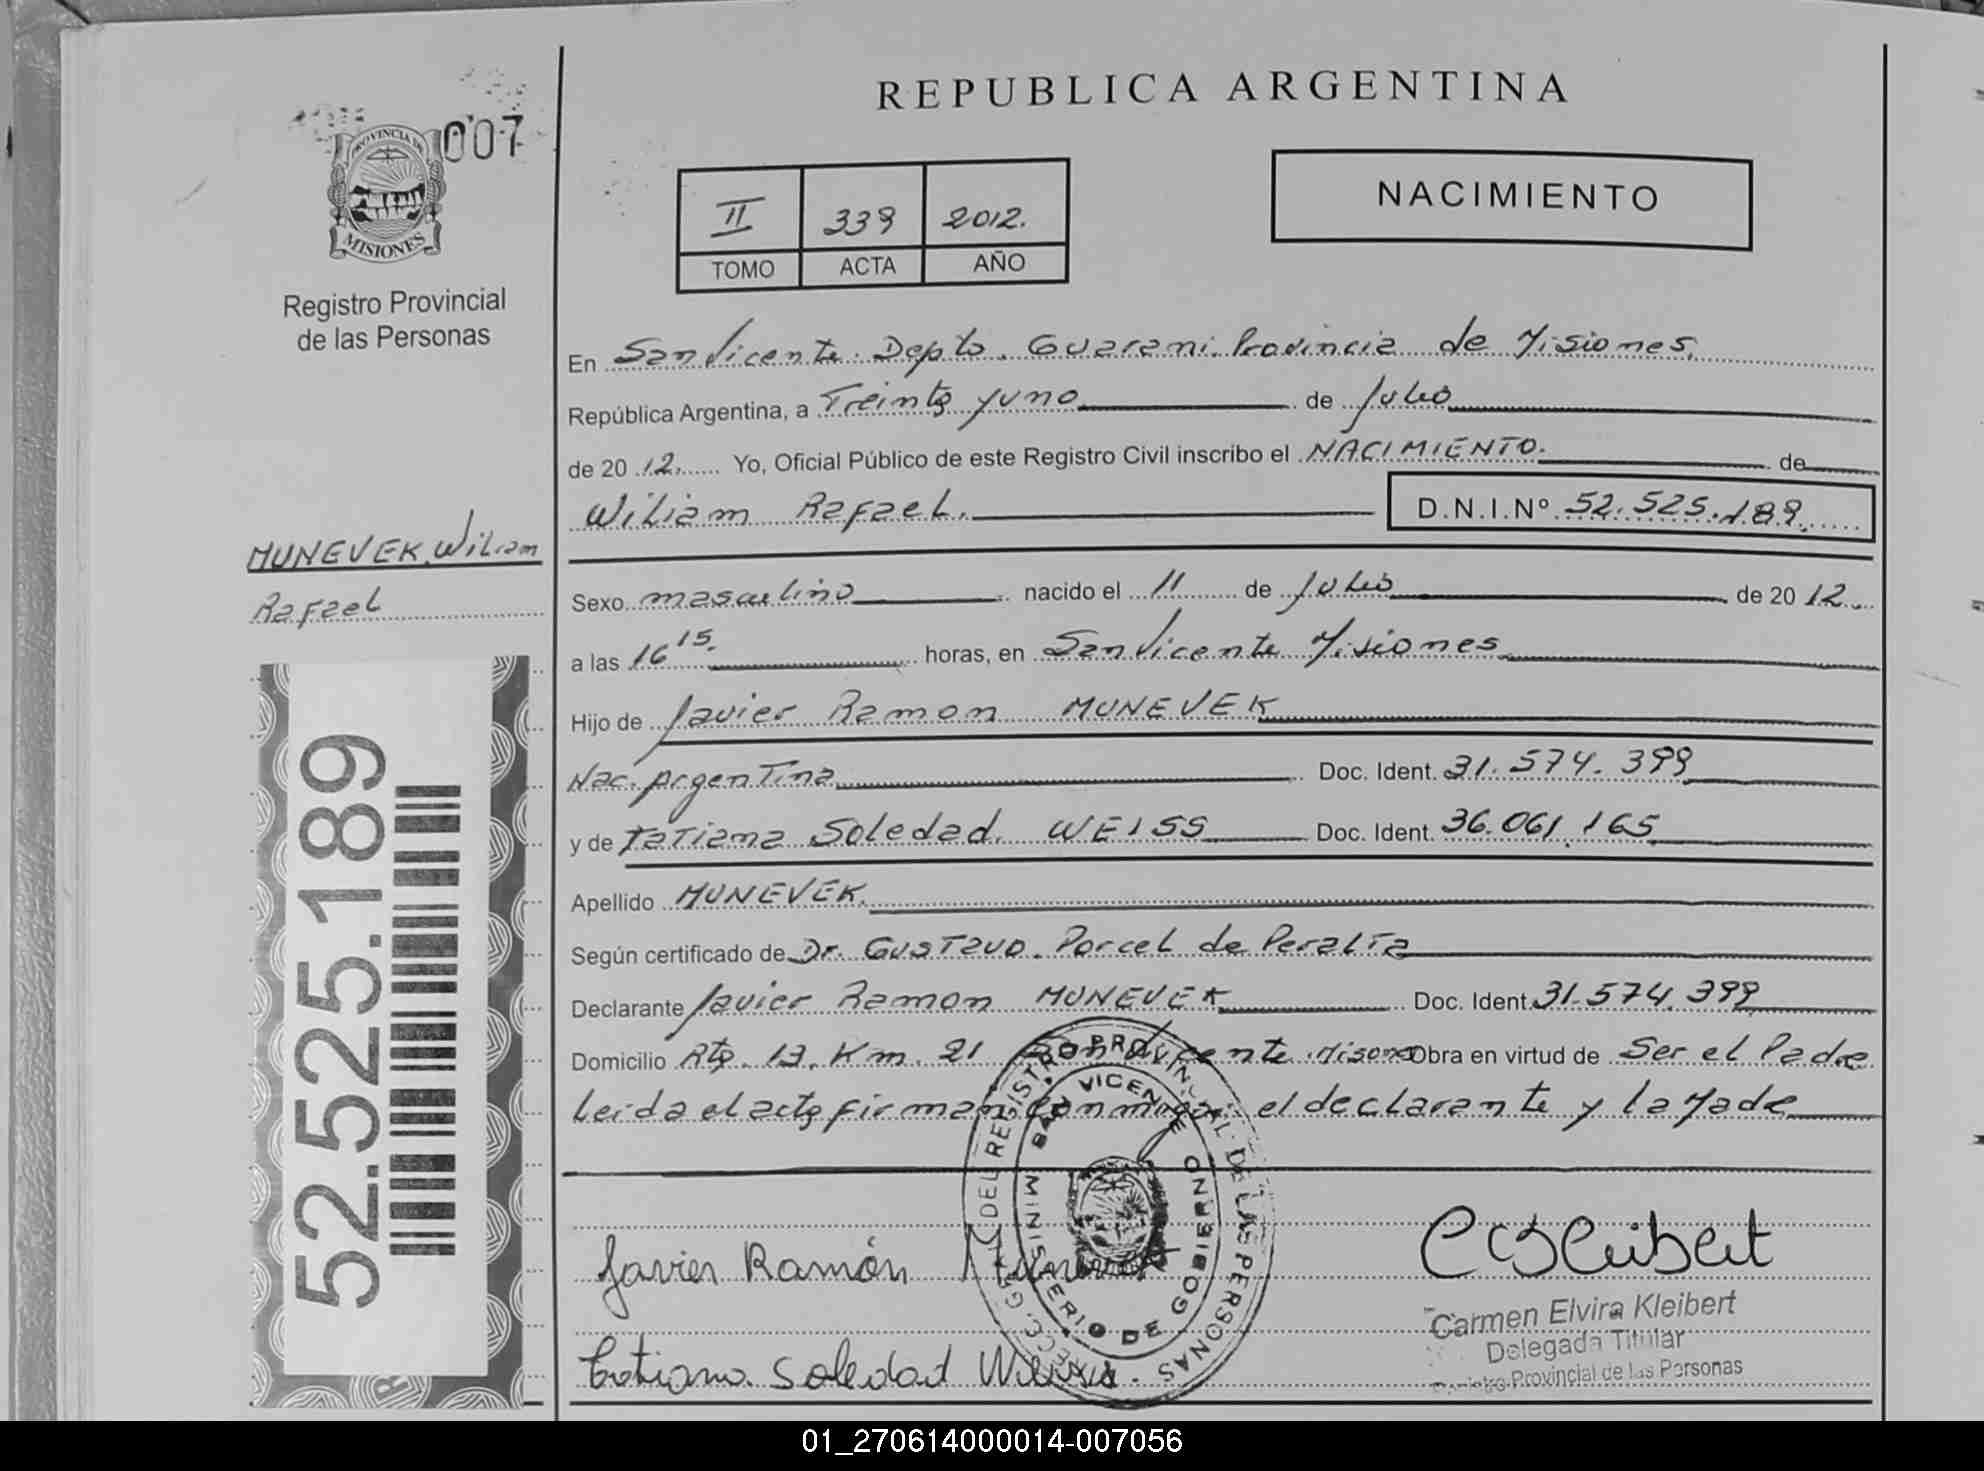 REPUBLICA ARGENTINA
007
PROVINCIA DE
MISIONES
Registro Provincial
de las Personas
II 339 2012.
TOMO ACTA AÑO
NACIMIENTO
En San Vicente. Depto. Guarani. Provincia de Misiones.
República Argentina, a Treinta y uno de Julio
de 20 12. Yo, Oficial Público de este Registro Civil inscribo el NACIMIENTO. de
Wiliam Rafael. D.N.I.Nº 52.525.189
MUNEVEK, Wiliam
Rafael
Sexo masculino nacido el 11 de Julio de 20 12.
a las 16 15. horas, en San Vicente Misiones
Hijo de Javier Ramon MUNEVEK
Nac. Argentina Doc. Ident. 31.574.399
y de Tatiana Soledad. WEISS Doc. Ident. 36.061.165
Apellido MUNEVEK.
Según certificado de Dr. Gustavo. Porcel de Peralta
Declarante Javier Ramon MUNEVEK Doc. Ident. 31.574.399
Domicilio Rta. 13. Km. 21 San Vicente Misiones Obra en virtud de Ser el Padre
Leida el acta firman conmigo el declarante y la Madre
52.525.189
DEL REGISTRO PROVINCIAL DE LAS PERSONAS
SAN VICENTE
MINISTERIO DE GOBIERNO
Javier Ramón
Tatiana Soledad
CEKleibert
Carmen Elvira Kleibert
Delegada Titular
Registro Provincial de las Personas
01_270614000014-007056